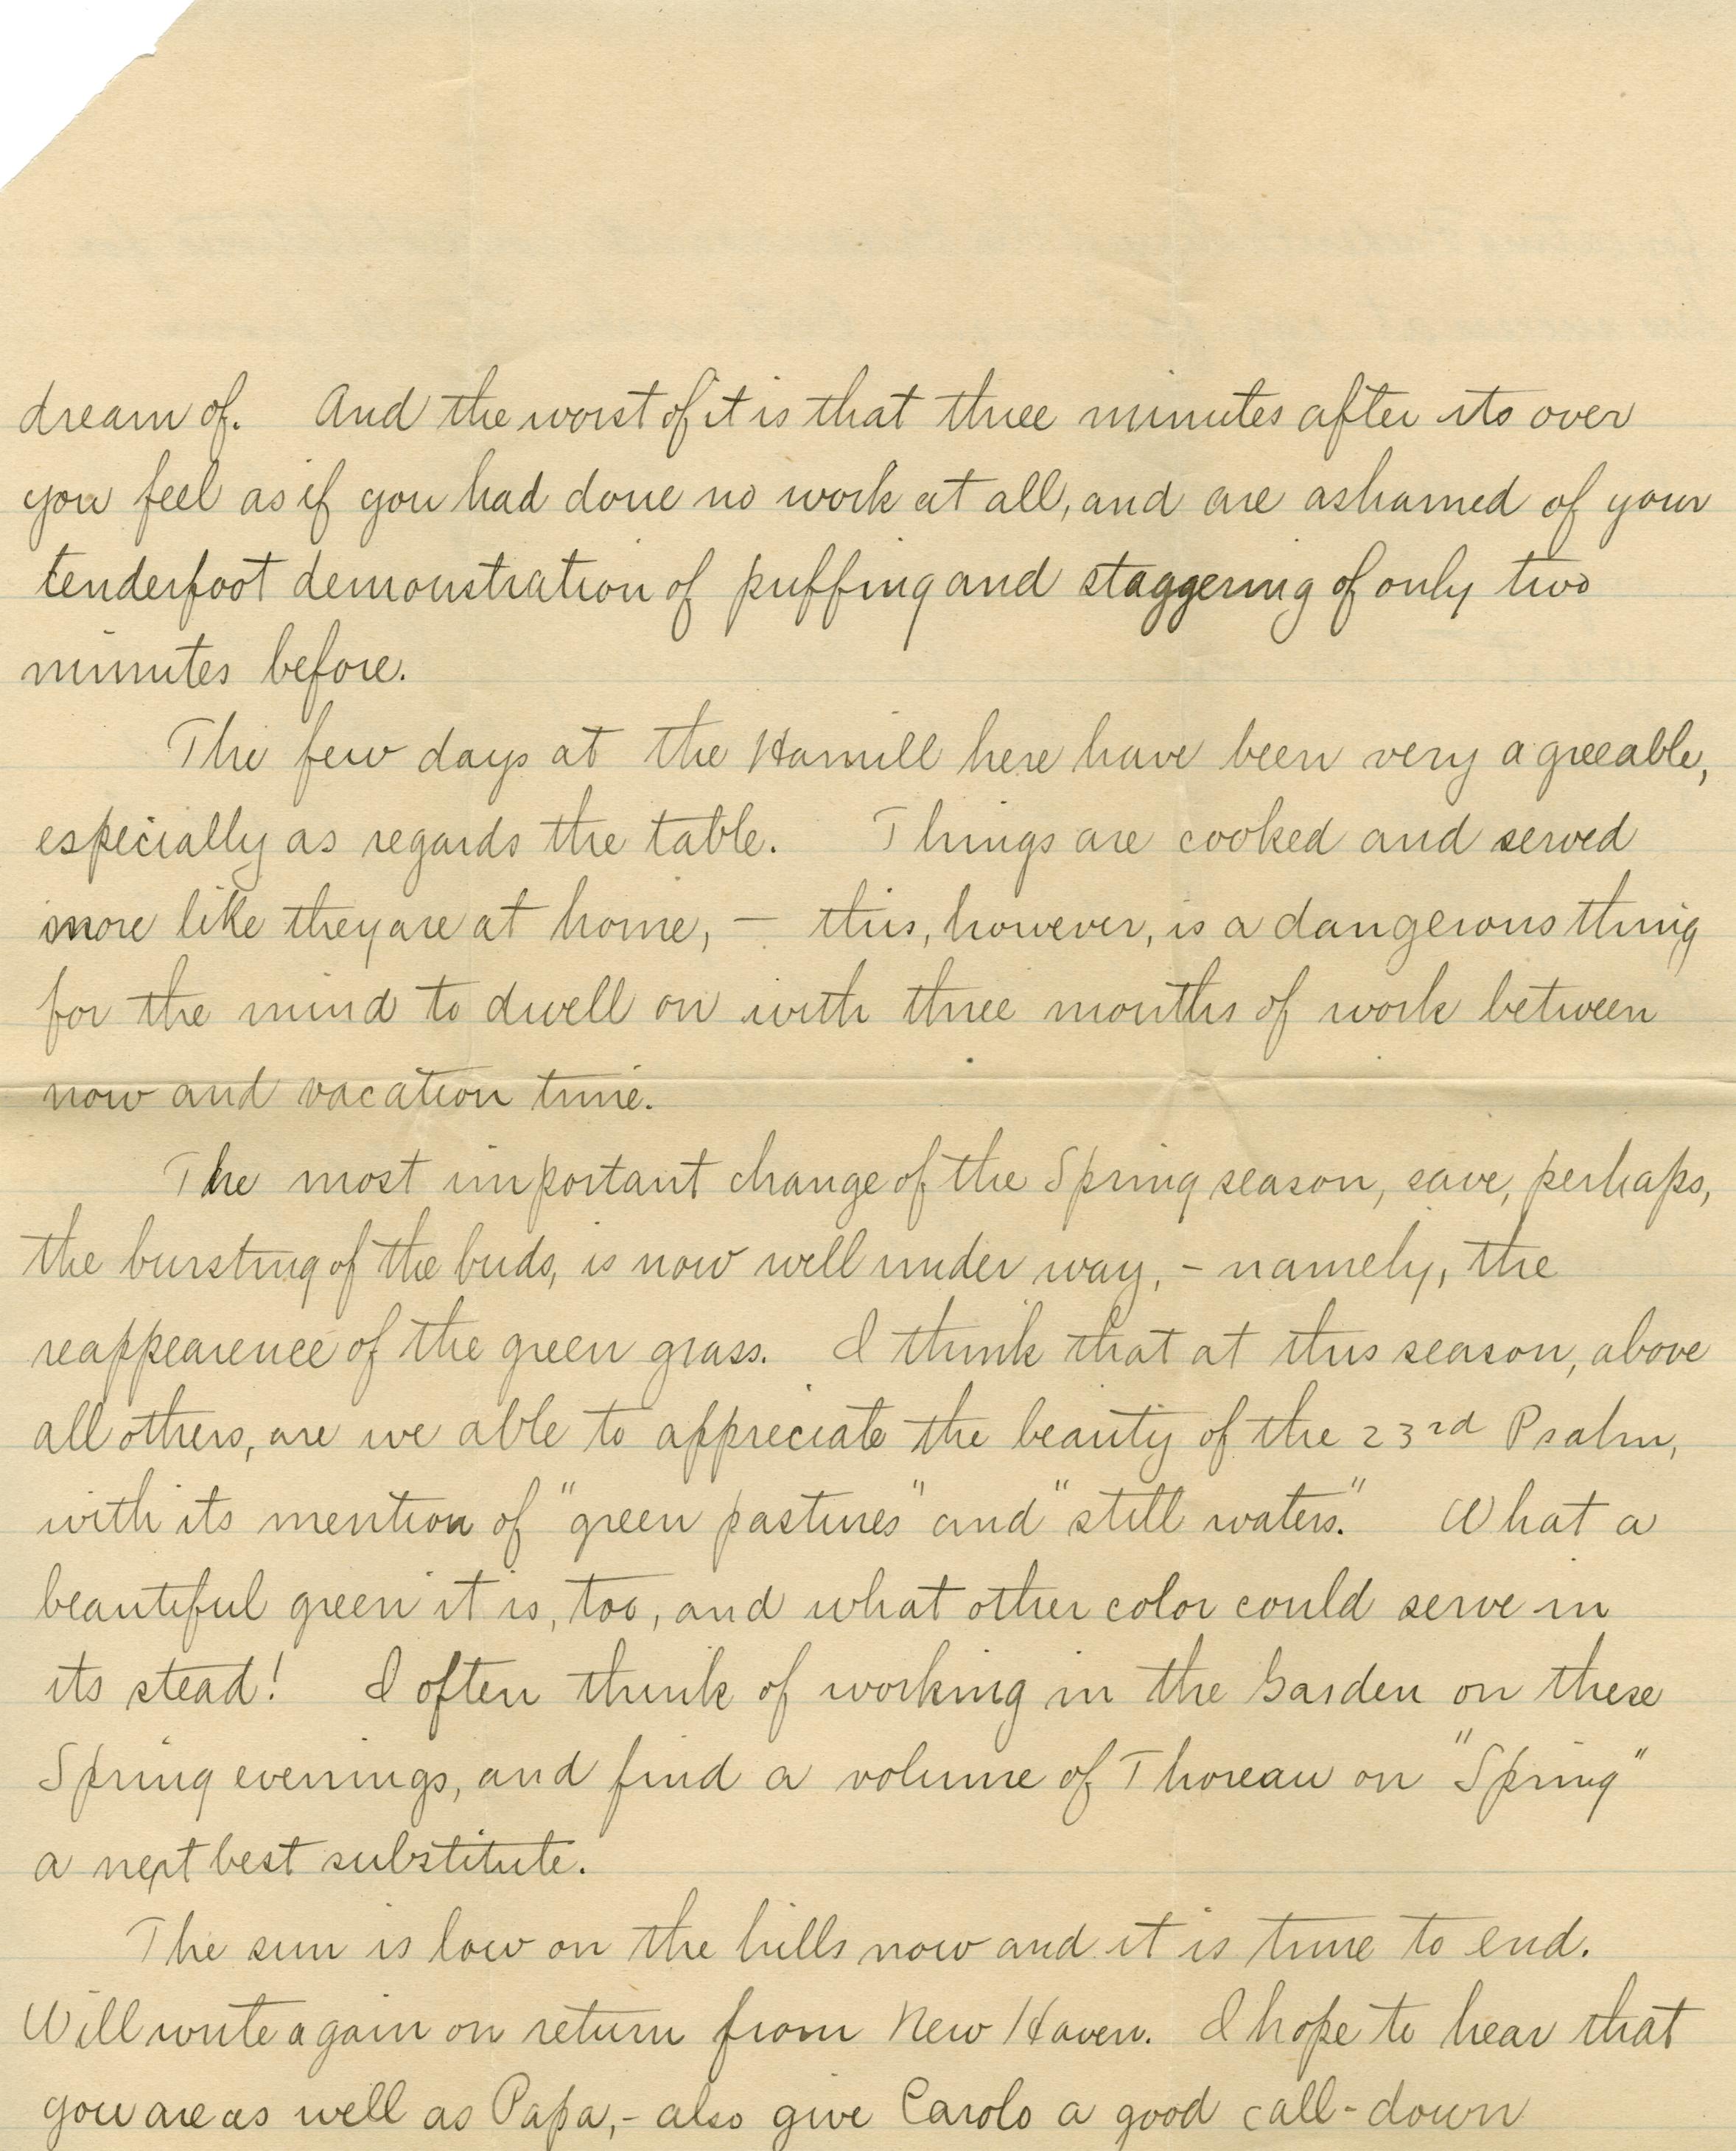 dream of. And the worst of it is that three minutes after its over
you feel as if you had done no work at all, and are ashamed of your
tenderfoot demonstration of puffing and staggering of only two
minutes before.
The few days at the Hamill here have been very agreeable,
especially as regards the table. Things are cooked and served
more like they are at home, – this, however, is a dangerous thing
for the mind to dwell on with three months of work between
now and vacation time.
The most important change of the Spring season, save, perhaps,
the bursting of the buds, is now well under way, – namely, the
reappearence of the green grass. I think that at this season, above
all others, are we able to appreciate the beauty of the 23rd Psalm,
with its mention of "green pastures" and "still waters." What a
beautiful green it is, too, and what other color could serve in
its stead! I often think of working in the Garden on these
Spring evenings, and find a volume of Thoreau on "Spring"
a next best substitute.
The sun is low on the hills now and it is time to end.
Will write again on return from New Haven. I hope to hear that
you are as well as Papa, – also give Carolo a good call-down